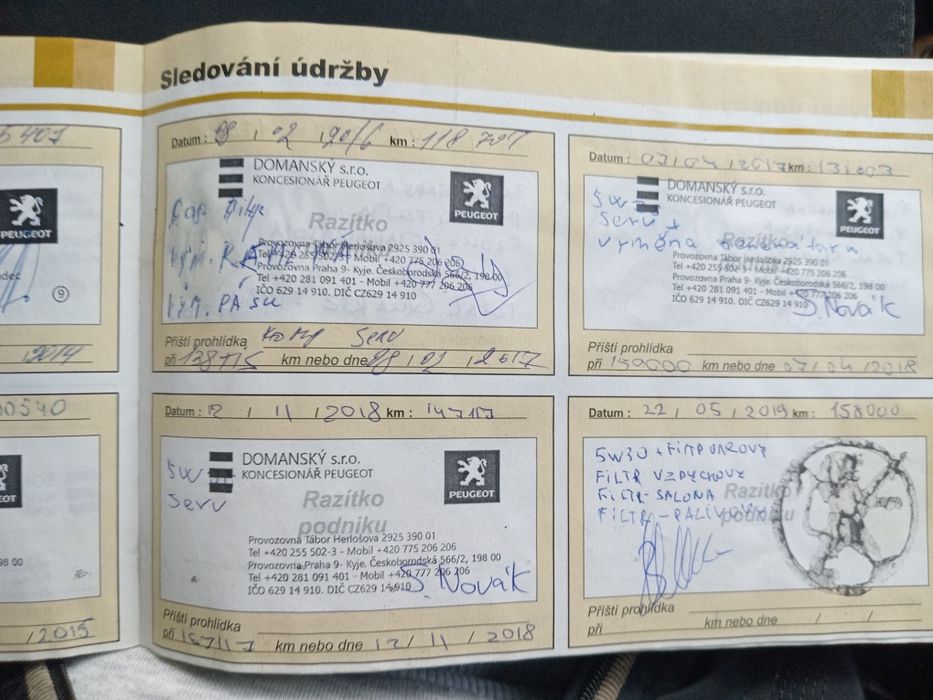 Sledování údržby
5407
PEUGEOT
9
2014
00540
98 00
/ 2015
Datum : 18 / 02 / 2016 km : 118 707
DOMANSKÝ s.r.o.
KONCESIONÁŘ PEUGEOT
PEUGEOT
Razítko
Provozovna Tábor Herlošova 2925 390 01
Tel +420 255 502-3 - Mobil +420 775 206 206
Provozovna Praha 9- Kyje. Českoborodská 566/2, 198 00
Tel +420 281 091 401 - Mobil +420 777 206 206
IČO 629 14 910. DIČ CZ629 14 910
Příští prohlídka
při 138715 km nebo dne 18 / 02 / 2017
Datum : 07 / 04 / 2017 km : 131803
DOMANSKÝ s.r.o.
KONCESIONÁŘ PEUGEOT
PEUGEOT
5W
Serv +
Výměna
Provozovna Tábor Herlošova 2925 390 01
Tel +420 255 502-3 - Mobil +420 775 206 206
Provozovna Praha 9- Kyje. Českoborodská 566/2, 198 00
Tel +420 281 091 401 - Mobil +420 777 206 206
IČO 629 14 910. DIČ CZ629 14 910
J. Novák
Příští prohlídka
při 150000 km nebo dne 07 / 04 / 2018
Datum : 12 / 11 / 2018 km : 147117
DOMANSKÝ s.r.o.
KONCESIONÁŘ PEUGEOT
PEUGEOT
5W
Serv
Razítko
podniku
Provozovna Tábor Herlošova 2925 390 01
Tel +420 255 502-3 - Mobil +420 775 206 206
Provozovna Praha 9- Kyje. Českoborodská 566/2, 198 00
Tel +420 281 091 401 - Mobil +420 777 206 206
IČO 629 14 910. DIČ CZ629 14 910
J. Novák
Příští prohlídka
při 157117 km nebo dne 12 / 11 / 2018
Datum : 22 / 05 / 2019 km : 158000
5W30 + FILTR
FILTR VZDUCHOVÝ
FILTR-SALONA
FILTR-PALIVOVÝ
Razítko
podniku
Příští prohlídka
při km nebo dne / /